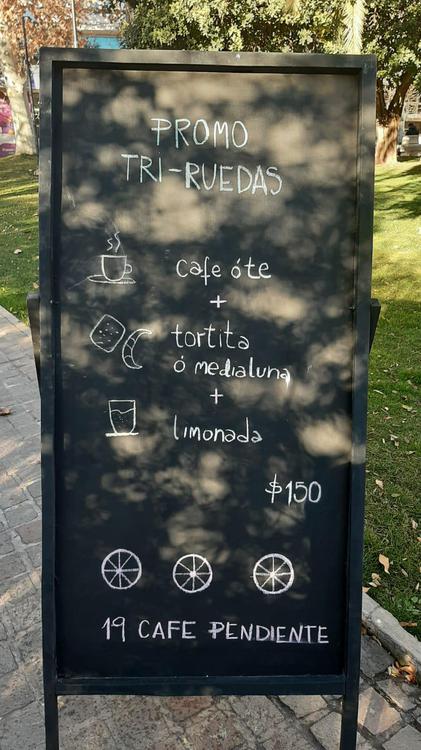 PROMO
TRI-RUEDAS
cafe óte
+
tortita
ó medialuna
+
limonada
$150
19 CAFE PENDIENTE